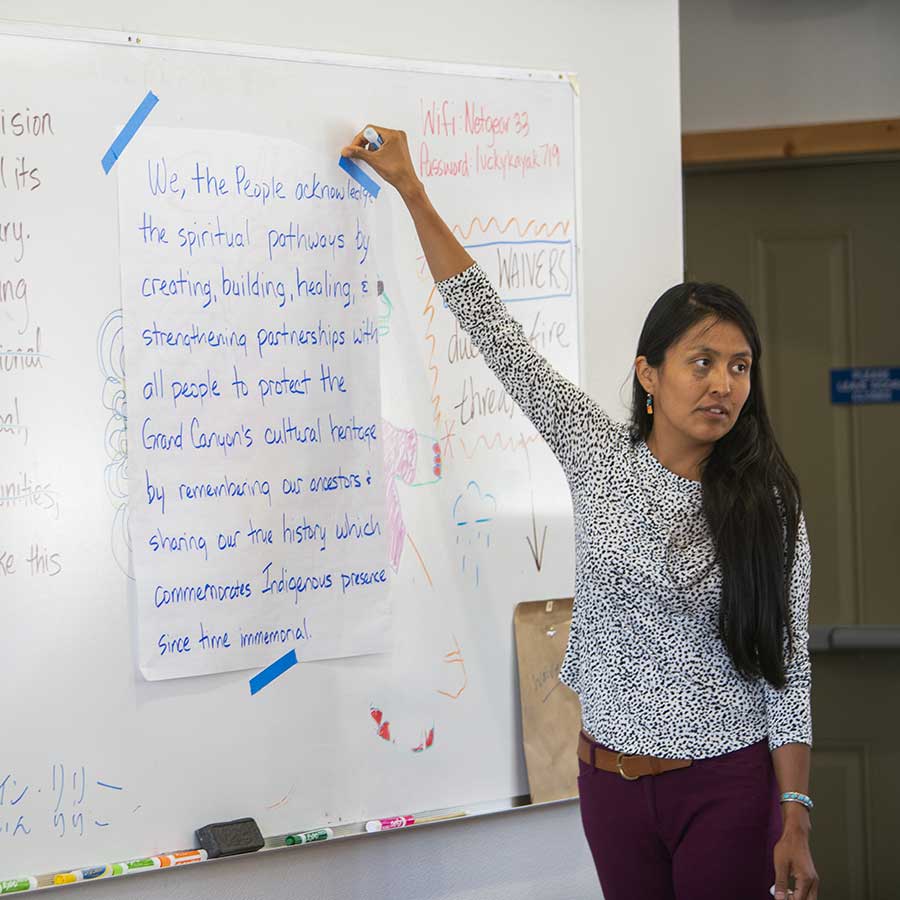 ision
l its
ry.
ng
ional
al,
unities,
ke this
We, the People acknowledge
the spiritual pathways by
creating, building, healing, &
strengthening partnerships with
all people to protect the
Grand Canyon's cultural heritage
by remembering our ancestors &
sharing our true history which
commemorates Indigenous presence
since time immemorial.
Wifi: Netgear 33
Password: luckykayak719
WAIVERS
fire
PLEASE
LEAVE DOOR
CLOSED